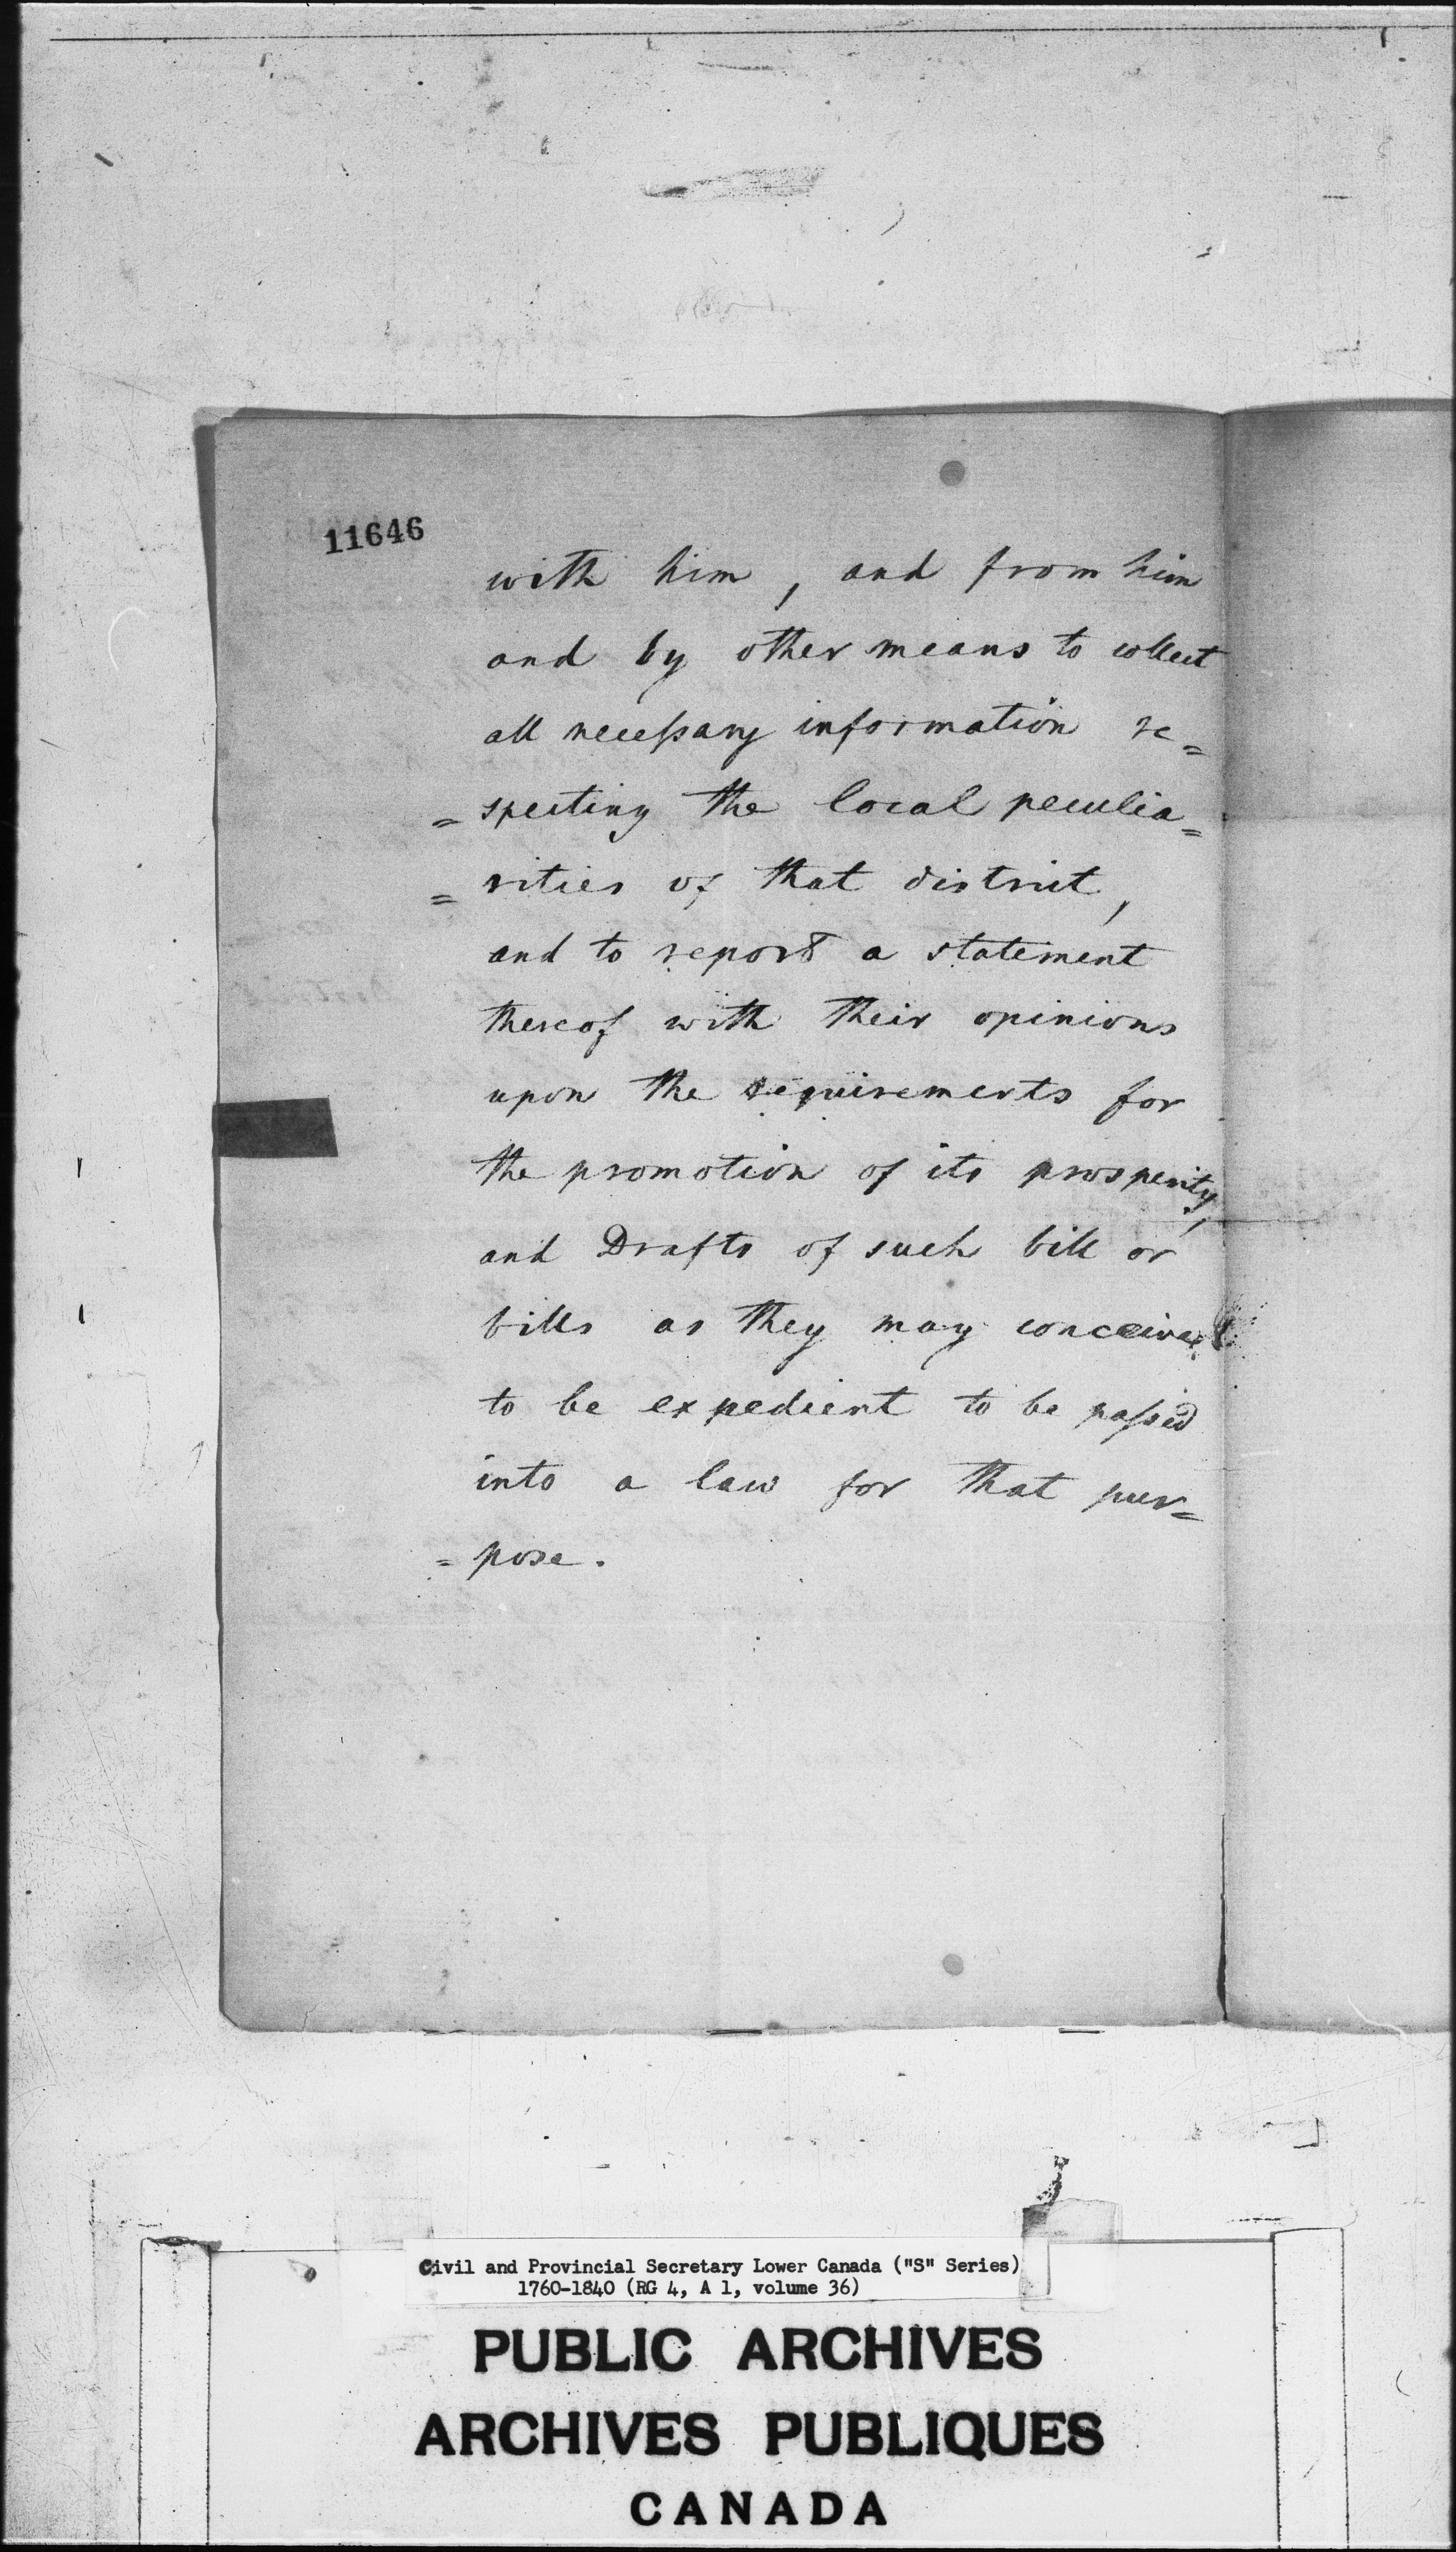 11646
with him, and from him
and by other means to collect
all neceſsary information re=
=specting the local peculia=
=rities of that district,
and to report a statement
thereof with their opinions
upon the requirements for
the promotion of its prosperity,
and Drafts of such bill or
bills as they may conceive
to be expedient to be paſsed
into a law for that pur=
=pose.
Civil and Provincial Secretary Lower Canada ("S" Series)
1760-1840 (RG 4, A 1, volume 36)
PUBLIC ARCHIVES
ARCHIVES PUBLIQUES
CANADA